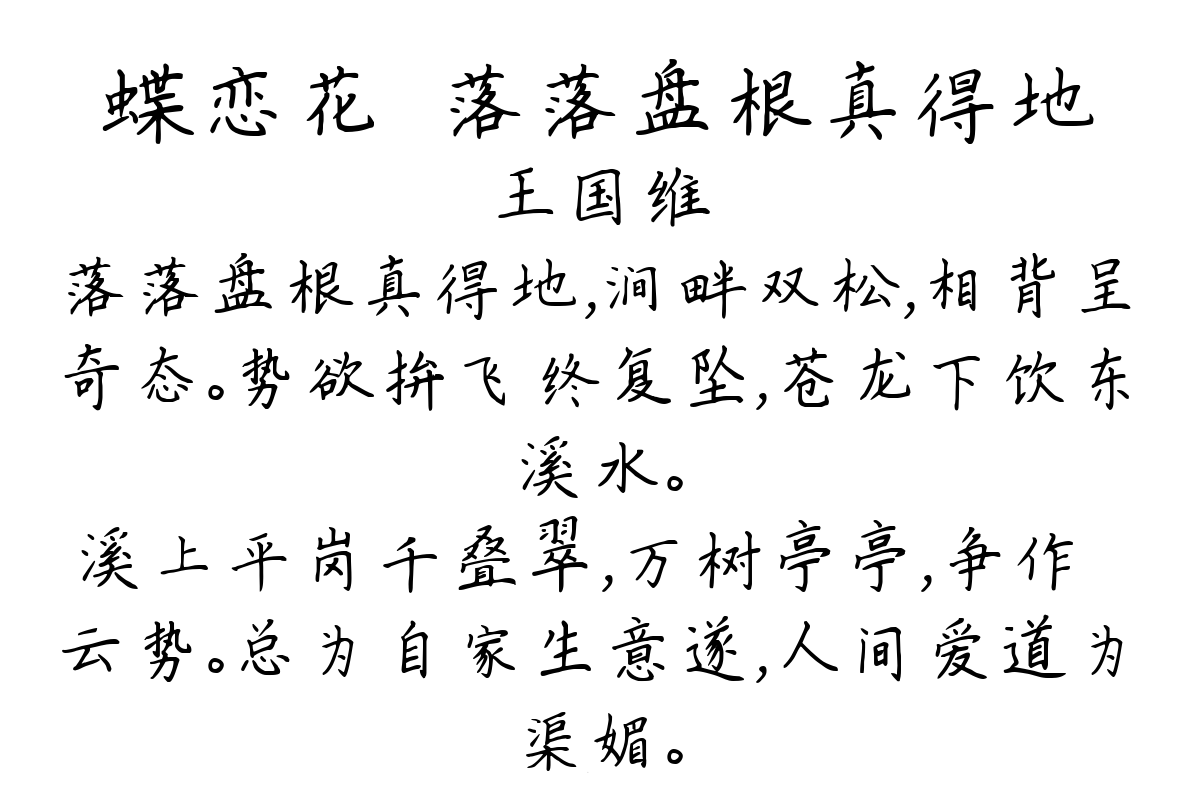 蝶恋花 落落盘根真得地
王国维
落落盘根真得地,涧畔双松,相背呈
奇态。势欲拚飞终复坠,苍龙下饮东
溪水。
溪上平岗千叠翠,万树亭亭,争作
云势。总为自家生意遂,人间爱道为
渠媚。